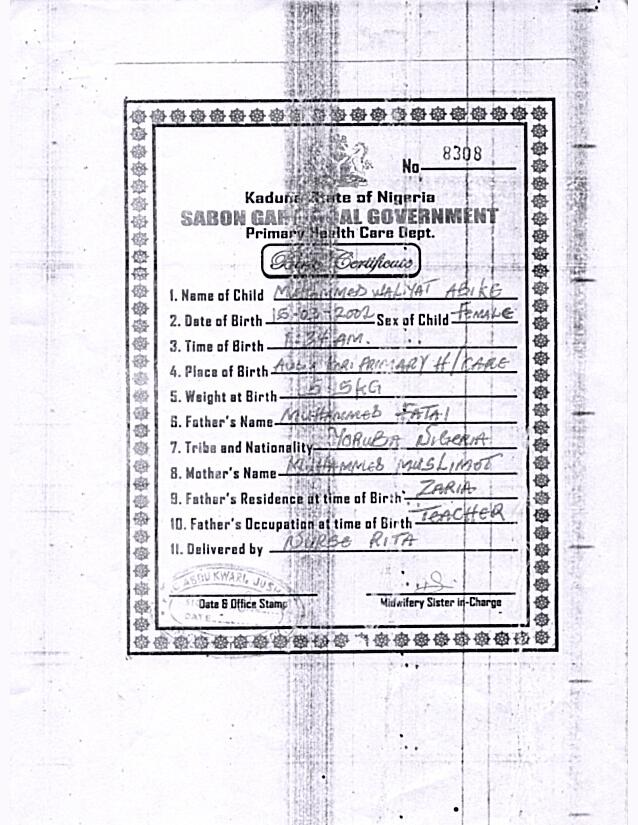 No 8308
Kaduna State of Nigeria
SABON GARI LOCAL GOVERNMENT
Primary Health Care Dept.
Birth Certificate
1. Name of Child MUHAMMED WALIYAT ABIKE
2. Date of Birth 15-03-2002 Sex of Child FEMALE
3. Time of Birth 1:34 AM.
4. Place of Birth PRIMARY H/CARE
5. Weight at Birth 5.5KG
6. Father's Name MUHAMMED FATAI
7. Tribe and Nationality YORUBA NIGERIA
8. Mother's Name MUHAMMED MUSLIMOT
9. Father's Residence at time of Birth ZARIA
10. Father's Occupation at time of Birth TEACHER
11. Delivered by NURSE RITA
Date & Office Stamp
Midwifery Sister in-Charge
DATE